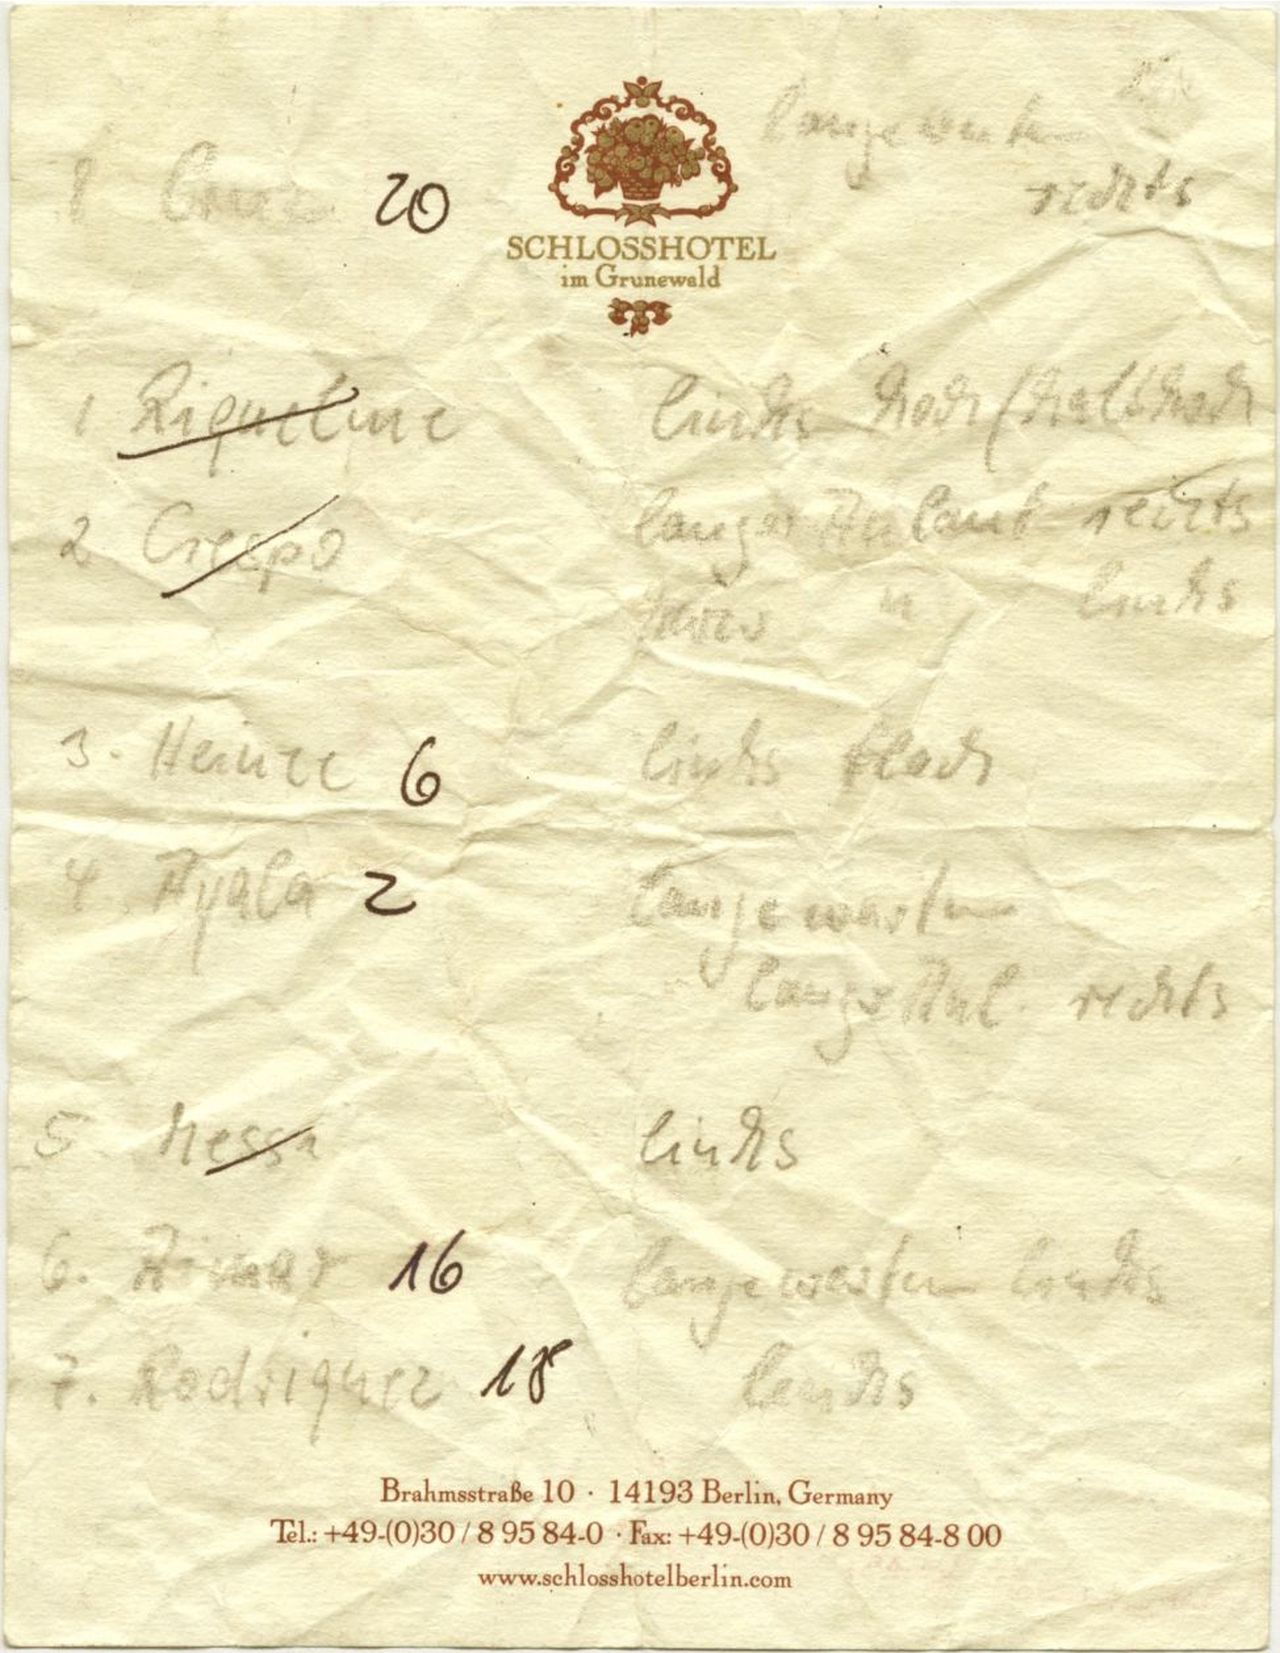 lange warten
8 Cruz 20 rechts
SCHLOSSHOTEL
im Grunewald
1 Riquelme links hoch/halbhoch
2 Crespo langer Anlauf rechts
kurzer " links
3. Heinze 6 links flach
4. Ayala 2 lange warten
langer Anl. rechts
5 Messi links
6. Aimar 16 lange warten links
7. Rodriguez 18 links
Brahmsstraße 10 · 14193 Berlin, Germany
Tel.: +49-(0)30 / 8 95 84-0 · Fax: +49-(0)30 / 8 95 84-8 00
www.schlosshotelberlin.com